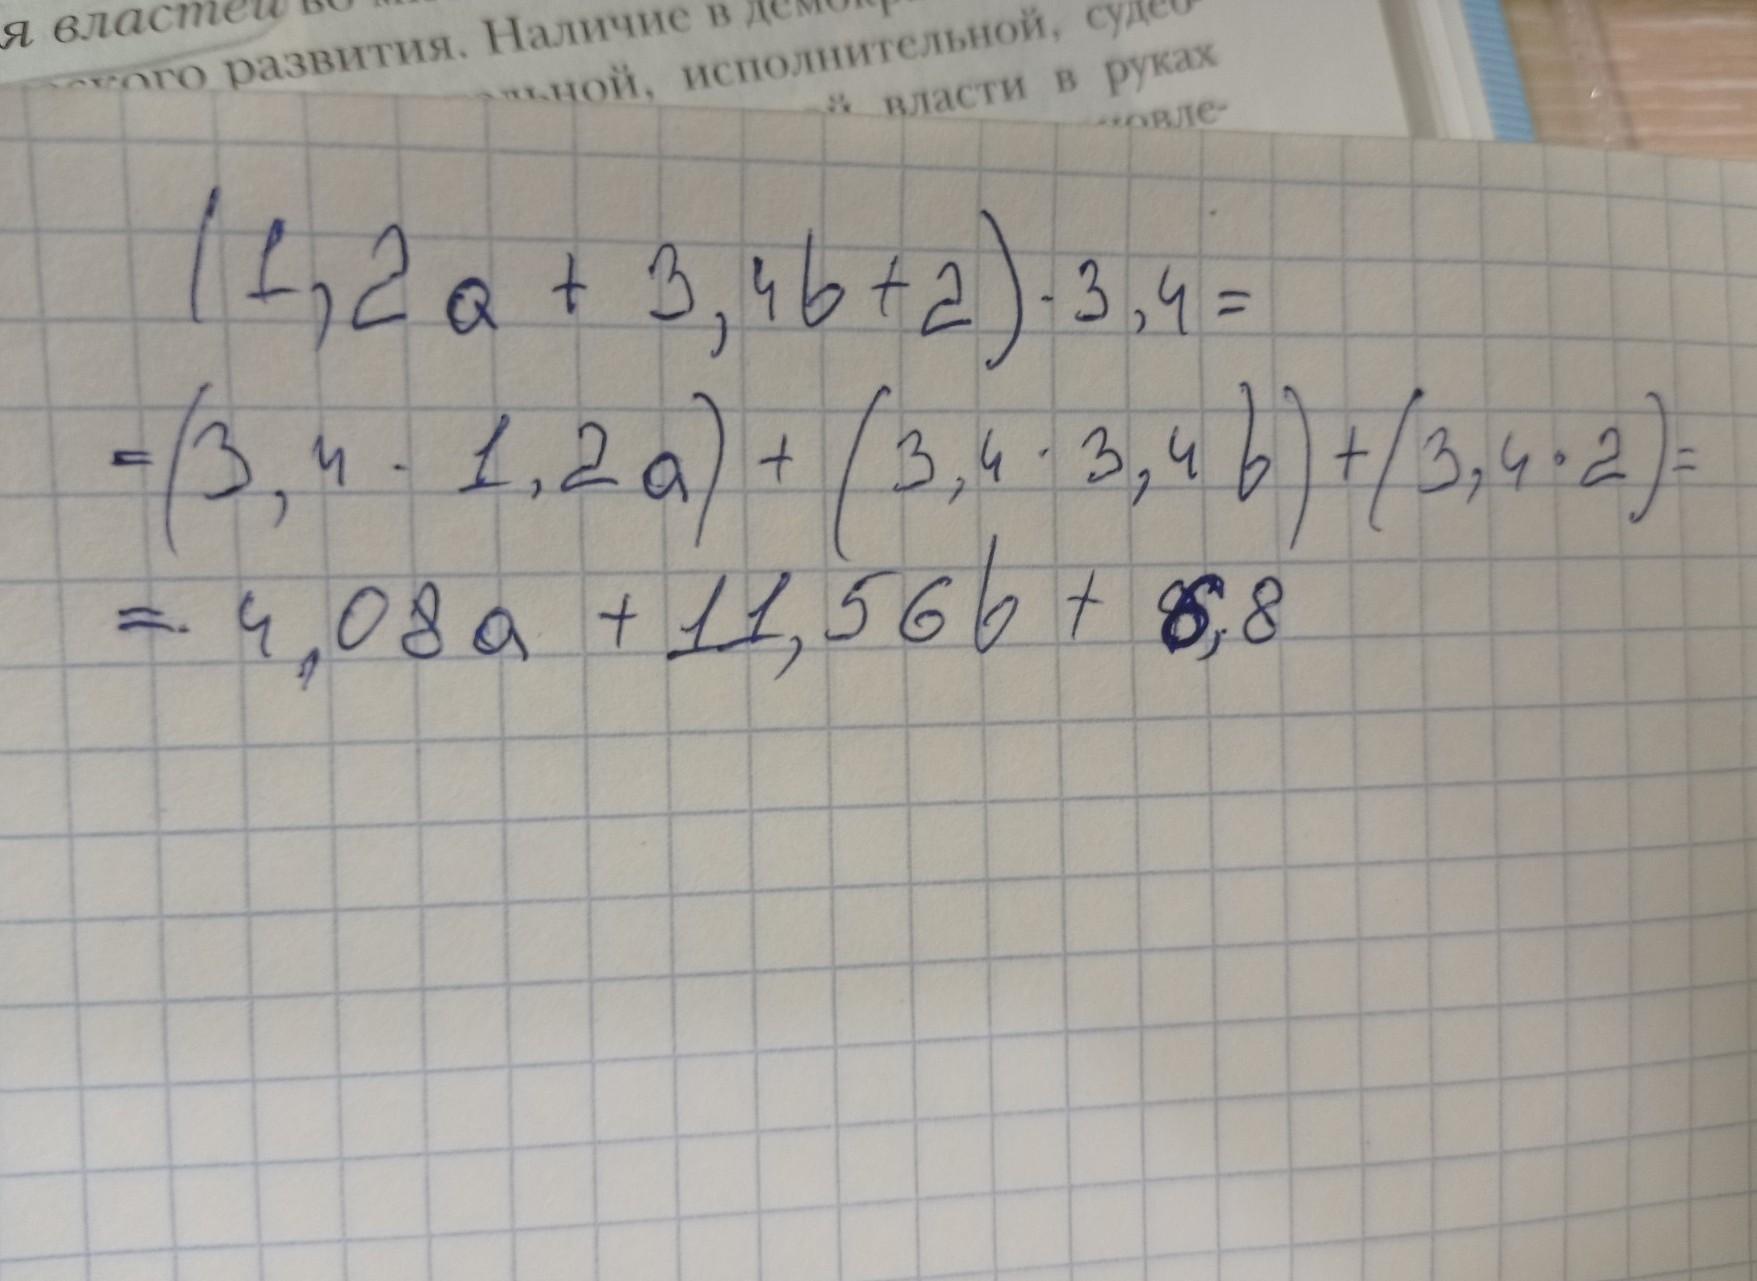 я властей во
развития. Наличие в
исполнительной,
власти в руках
(1,2a + 3,4b + 2) · 3,4 =
= (3,4 · 1,2a) + (3,4 · 3,4b) + (3,4 · 2) =
= 4,08a + 11,56b + 6,8